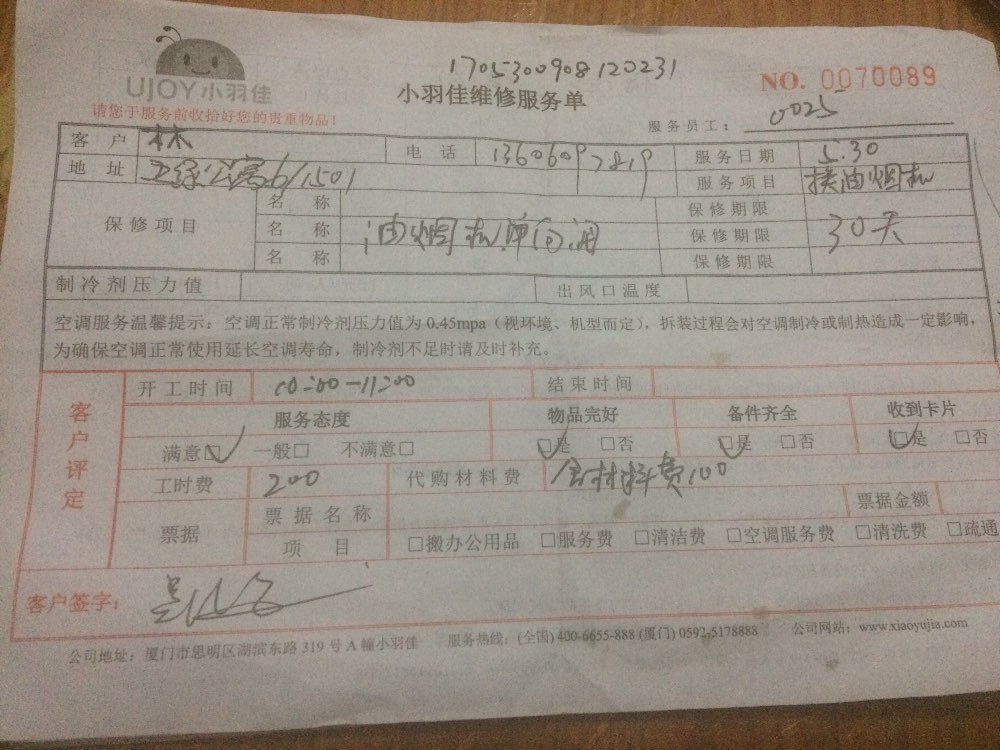 1705300908120231
UJOY小羽佳
小羽佳维修服务单
NO. 0070089
请您于服务前收拾好您的贵重物品!
服务员工: 0025
客 户 林 电 话 13606097819 服务日期 5.30
地 址 公寓6/1501 服务项目 换油烟机
保修项目
名 称 保修期限
名 称 油烟机 保修期限 30天
名 称 保修期限
制冷剂压力值 出风口温度
空调服务温馨提示: 空调正常制冷剂压力值为0.45mpa(视环境、机型而定),拆装过程会对空调制冷或制热造成一定影响,
为确保空调正常使用延长空调寿命,制冷剂不足时请及时补充。
客户评定
开工时间 10:00-11:00 结束时间
服务态度 物品完好 备件齐全 收到卡片
满意☑ 一般□ 不满意□ ☑是 □否 ☑是 □否 ☑是 □否
工时费 200 代购材料费 含材料费100
票据 票据名称 票据金额
项 目 □搬办公用品 □服务费 □清洁费 □空调服务费 □清洗费 □疏通
客户签字:
公司地址: 厦门市思明区湖滨东路 319 号 A 幢小羽佳 服务热线: (全国) 400-6655-888 (厦门) 0592-5178888 公司网站: www.xiaoyujia.com